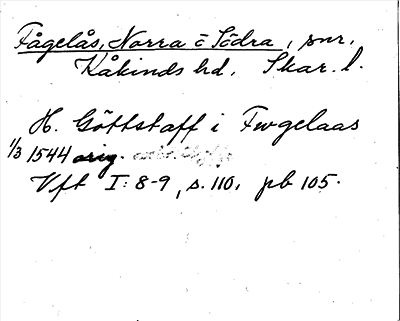 Fågelås, Norra o Södra, snr.
Kåkinds hd. Skar. l.
H. Göttstaff i Fwgelaas
1/3 1544 orig.
Vft I: 8-9, s. 110, pb 105.